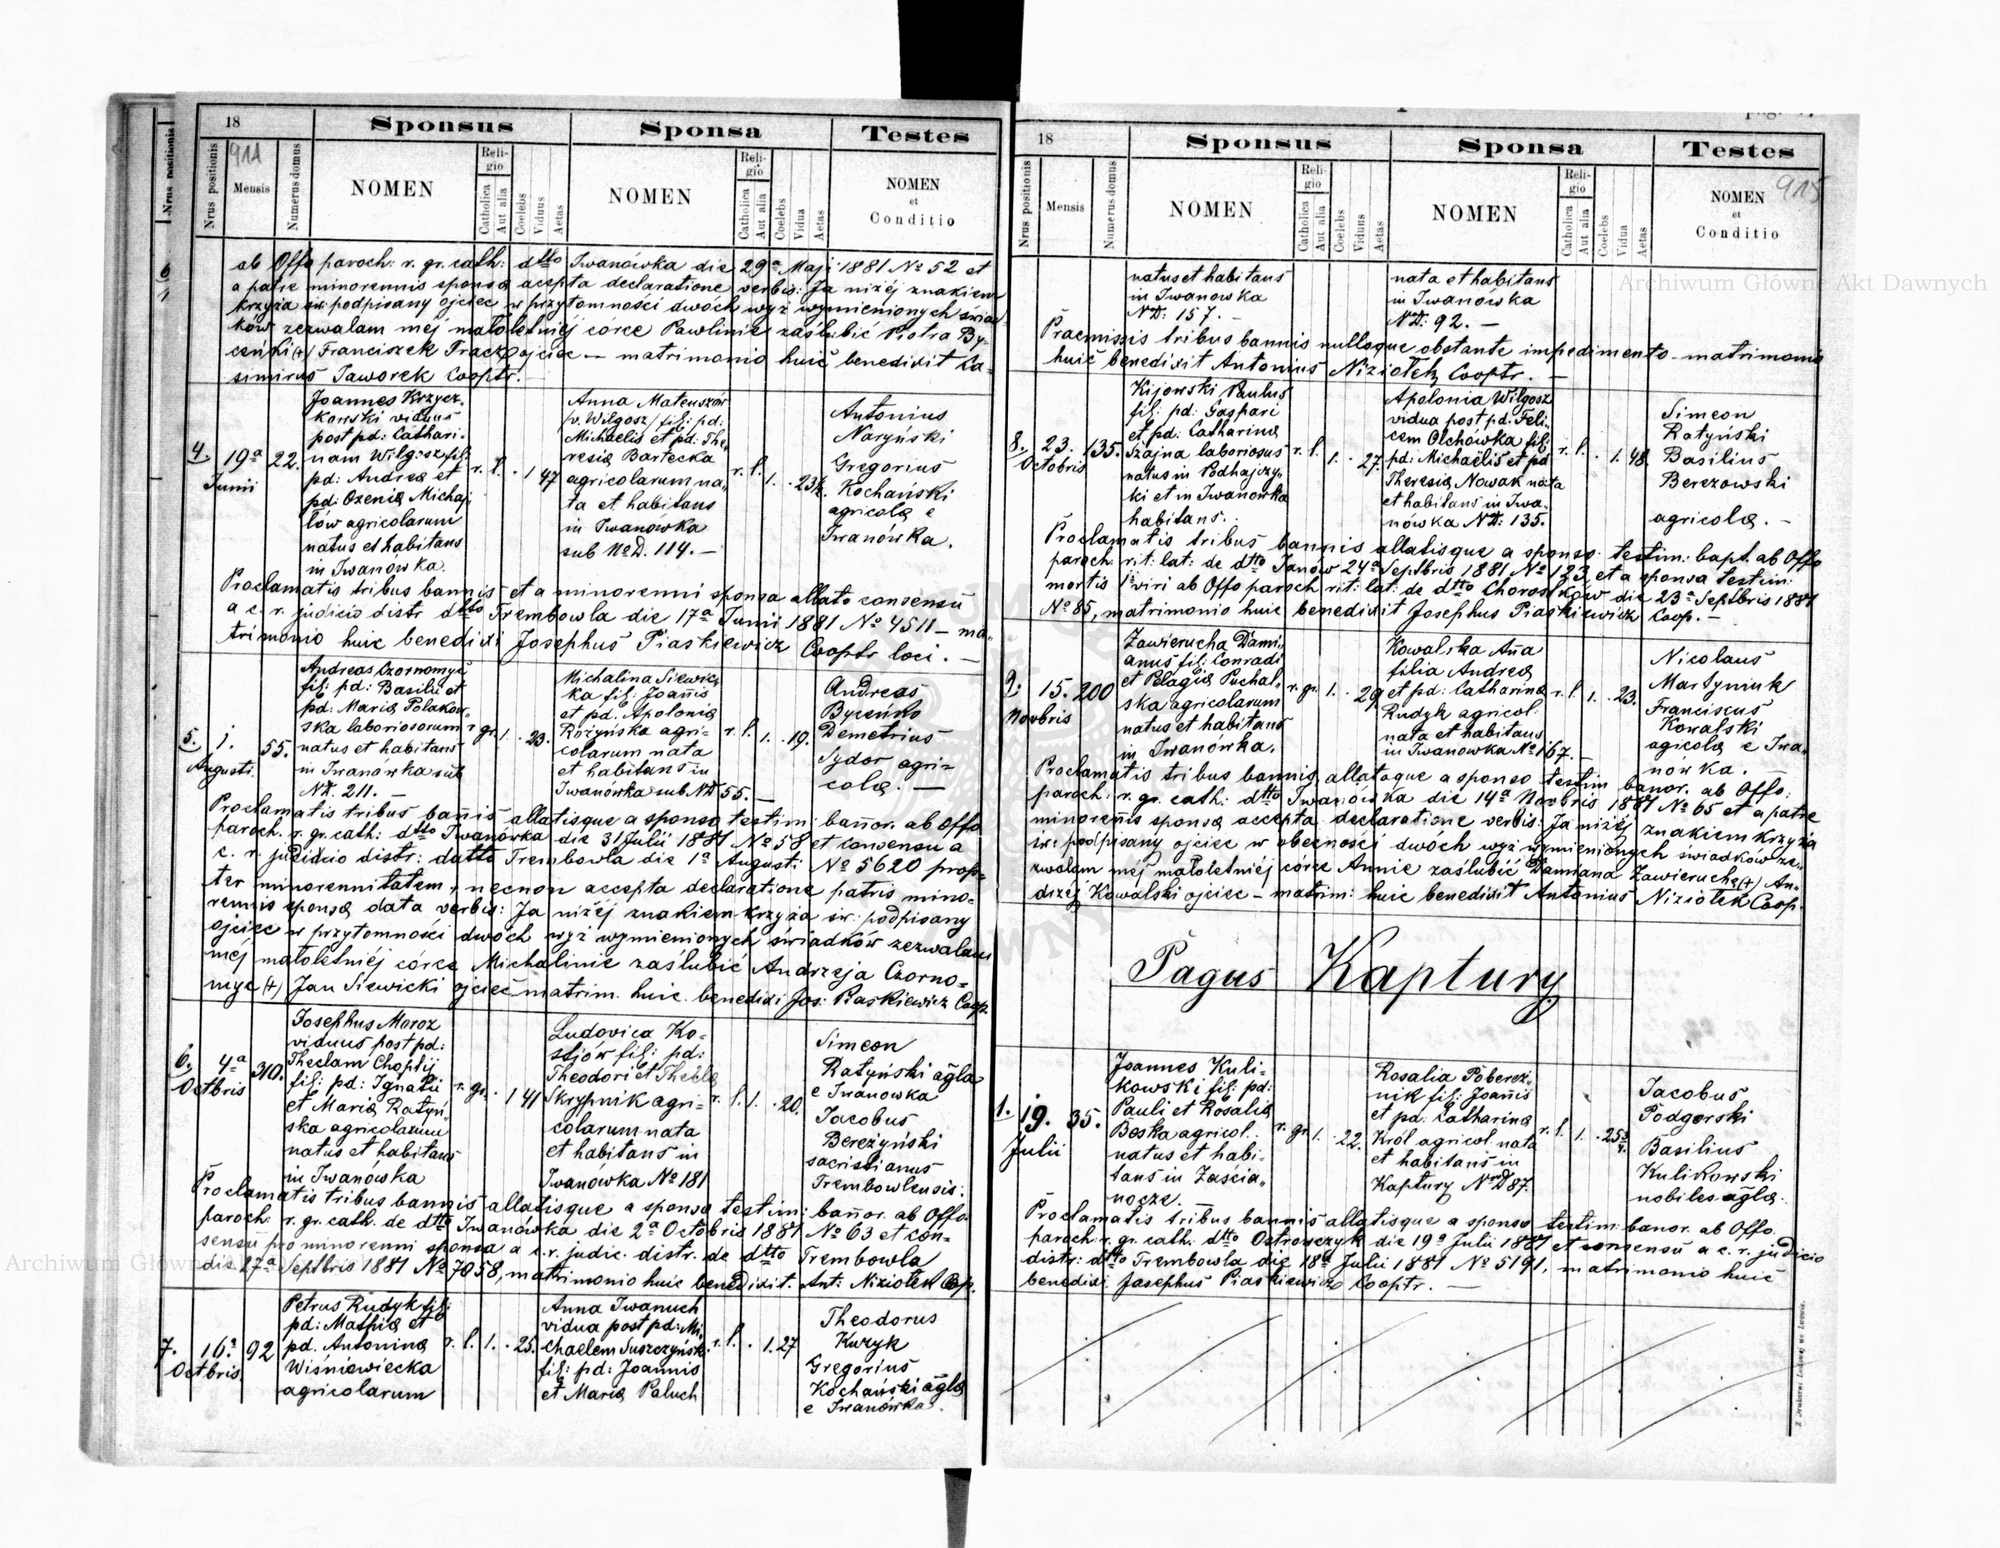 18
914
Sponsus
Sponsa
Testes
Nrus positionis
Mensis
Numerus domus
NOMEN
Religio
Catholica
Aut alia
Coelebs
Viduus
Aetas
NOMEN
Religio
Catholica
Aut alia
Coelebs
Vidua
Aetas
NOMEN
et
Conditio
ab Offo paroch: r. gr. cath: dtto Iwanówka die 29a Maji 1881 No 52 et
a patre minorennis sponsa acepta declaratione verbis: Ja niżéj znakiem
krzyża św: podpisany ojciec w przytomności dwóch wyż wymienionych świad-
ków zezwalam méj małoletniéj córce Pawlinie zaślubić Piotra By-
ceński (+) Franciszek Tracz ojciec — matrimonio huic benedixit Ca-
simirus Jaworek Cooptr. —
4.
19a
Junii
22.
Joannes Krzycz-
kowski viduus
post pd: Cathari-
nam Wilgosz fil:
pd: Andrea et
pd: Ozenia Michaj-
łów agricolarum
natus et habitans
in Iwanowka.
r. l. . 1 47
Anna Mateuszów
/v. Wilgosz/ fil: pd:
Michaelis et pd: The-
resia Bartecka
agricolarum na-
ta et habitans
in Iwanowka
sub No D. 114. —
r. l. 1. . 23½.
Antonius
Naryński
Gregorius
Kochański
agricola e
Iwanówka.
Proclamatis tribus bannis et a minorenni sponsa allato consensu
a c. r. judicio distr dtto Trembowla die 17a Junii 1881 No 4511 — ma-
trimonio huic benedixi Josephus Piaskiewicz Cooptr loci. —
5.
1.
Augusti.
55.
Andreas Czornomyć
fil: pd: Basilii et
pd: Maria Polakow-
ska laboriosorum
natus et habitans
in Iwanówka sub
ND. 211. —
r. gr. 1. . 23.
Michalina Siewic-
ka fil: Joañis
et pd. Apolonia
Rożyńska agri-
colarum nata
et habitans in
Iwanówka sub ND 55. —
r. l. 1. . 19.
Andreas
Byceńko
Demetrius
Sydor agri-
cola. —
Proclamatis tribus bañis allatisque a sponso testim: bañor. ab Offo
paroch. r. gr. cath: dtto Iwanówka die 31 Julii 1881 No 58 et consensu a
c. r. judicio distr: datto Trembowla die 1a Augusti No 5620 prop-
ter minorennitatem, necnon accepta declaratione patris mino-
rennis sponsa data verbis: Ja niżéj znakiem krzyża św: podpisany
ojciec w przytomności dwóch wyż wymienionych świadków zezwalam
méj małoletniéj córce Michalinie zaślubić Andrzeja Czorno-
myć (+) Jan Siewicki ojciec matrim. huic. benedixi Jos: Piaskiewicz Coop.
6.
4a
Octbris
310.
Josephus Moroz
viduus post pd:
Theclam Choptij
fil: pd: Ignatii
et Maria Ratyń-
ska agricolarum
natus et habitans
in Iwanówka
r. gr. . 1 41
Ludovica Ko-
stiów fil: pd:
Theodori et Thecla
Skrypnik agri-
colarum nata
et habitans in
Iwanówka No 181
r. l. 1. . 20.
Simeon
Ratyński agla
e Iwanowka
Jacobus
Bereżyński
sacristianus
Trembowlensis.
Proclamatis tribus bannis allatisque a sponso testim: bañor. ab Offo.
paroch: r. gr. cath. de dtto Iwanówka die 2a Octobris 1881 No 63 et con-
sensu pro minorenni sponsa a c. r. judic. distr. de dtto Trembowla
die 27a Septbris 1881 No 7058, matrimonio huic benedixit. Ant: Niziołek Cop.
7.
16.a
Octbris
92
Petrus Rudyk fil:
pd: Mathia et
pd. Antonina
Wiśniowiecka
agricolarum
r. l. 1. . 25.
Anna Iwanuch
vidua post pd: Mi-
chaelem Suszczyńsk.
fil: pd: Joannis
et Maria Paluch
r. l. . 1. 27
Theodorus
Kuzyk
Gregorius
Kochański agla
e Iwanówka.
18
915
Sponsus
Sponsa
Testes
Nrus positionis
Mensis
Numerus domus
NOMEN
Religio
Catholica
Aut alia
Coelebs
Viduus
Aetas
NOMEN
Religio
Catholica
Aut alia
Coelebs
Vidua
Aetas
NOMEN
et
Conditio
natus et habitans
in Iwanowka
ND: 157. —
nata et habitans
in Iwanowka
ND: 92. —
Praemissis tribus bannis nulloque obstante impedimento — matrimonio
huic benedixit Antonius Niziołek Cooptr. —
8.
23.
Octobris
135.
Kijowski Paulus
fil: pd: Gaspari
et pd: Catharina
Szajna laboriosus
natus in Podhajczy-
ki et in Iwanowka
habitans.
r. l. 1. . 27.
Apolonia Wilgosz
vidua post pd. Feli-
cem Olchówka fil:
pd: Michaëlis et pd
Theresia Nowak nata
et habitans in Iwa-
nówka ND: 135.
r. l. . 1. 48.
Simeon
Ratyński
Basilius
Berezowski
agricola. —
Proclamatis tribus bannis allatisque a sponso testim: bapt. ab Offo
paroch. rit: lat: de dtto Janów 24a Septbris 1881 No 123, et a sponsa testim:
mortis 1i viri ab Offo paroch rit: lat: de dtto Chorostków die 23a Septbris 1881
No 85, matrimonio huic benedixit Josephus Piaskiewicz Coop. —
9.
15.
Novbris
200
Zawierucha Dami-
anus fil: Conradi
et Pelagia Puchal-
ska agricolarum
natus et habitans
in Iwanowka.
r. gr. 1. . 29
Kowalska Aña
filia Andrea
et pd: Catharina
Rudyk agricol.
nata et habitans
in Iwanowka No 167. —
r. l. 1. . 23.
Nicolaus
Martyniuk
Franciscus
Kowalski
agicola e Iwa-
nówka.
Proclamatis tribus bannis, allatoque a sponso testim banor. ab Offo:
paroch: r. gr. cath: dtto Iwanówka die 14a Novbris 1881 No 65 et a patre
minorenis sponsa accepta declaratione verbis: Ja niżéj znakiem krzyża
św: podpisany ojciec w obecności dwóch wyż wymienionych świadków ze-
zwalam méj małoletniéj córce Annie zaślubić Damiana Zawierucha (+) An-
drzéj Kowalski ojciec — matrim: huic benedixit Antonius Niziołek Coop.
Pagus Kaptury
1.
19.
Julii
35.
Joannes Kuli-
kowski fil: pd:
Pauli et Rosalia
Boska agricol.
natus et habi-
tans in Zaścia-
nocze.
r. gr. 1. . 22.
Rosalia Poberez-
nik fil: Joañis
et pd: Catharina
Król agricol. nata
et habitans in
Kaptury Nro D 87.
r. l. 1. . 25¾.
Jacobus
Podgorski
Basilius
Kulikowski
nobiles agla.
Proclamatis tribus bannis allatisque a sponso testim: banor. ab Offo.
paroch. r. gr. cath: dtto Ostrowczyk die 19a Julii 1881 et consensu a c. r. judicio
distr: dtto Trembowla die 18a Julii 1881 No 5191, matrimonio huic
benedixi Josephus Piaskiewicz Cooptr. —
Archiwum Główne Akt Dawnych
Archiwum Główne Akt Dawnych